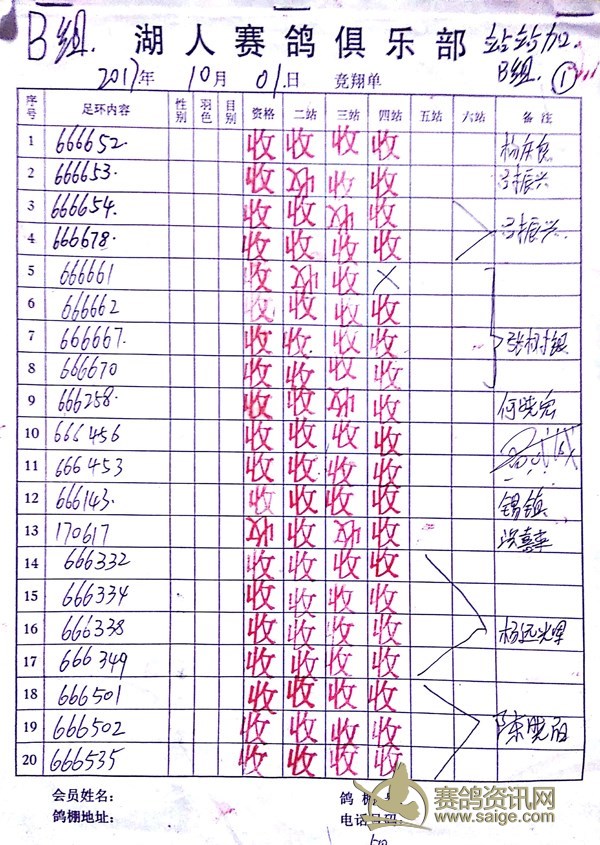 B组. 湖人赛鸽俱乐部 站站加.
2017年 10月 01.日 竞翔单 B组. ①
序号 足环内容 性别 羽色 目别 资格 二站 三站 四站 五站 六站 备注
1 666652. 收 收 收 收
2 666653. 收 收 收 收 吕振兴
3 666654. 收 收 收 收
4 666678. 收 收 收 收 吕振兴.
5 666661 收 收 收 ×
6 666662 收 收 收 收
7 666667. 收 收 收 收
8 666670 收 收 收 收
9 666258. 收 收 收 收
10 666456 收 收 收 收
11 666453 收 收 收 收
12 666143. 收 收 收 收 锡镇
13 170617 收 收 收 收
14 666332 收 收 收 收
15 666334 收 收 收 收
16 666338 收 收 收 收
17 666349 收 收 收 收
18 666501 收 收 收 收
19 666502 收 收 收 收
20 666535 收 收 收 收
会员姓名: 鸽棚号:
鸽棚地址: 电话号码:
赛鸽资讯网
www.saige.com